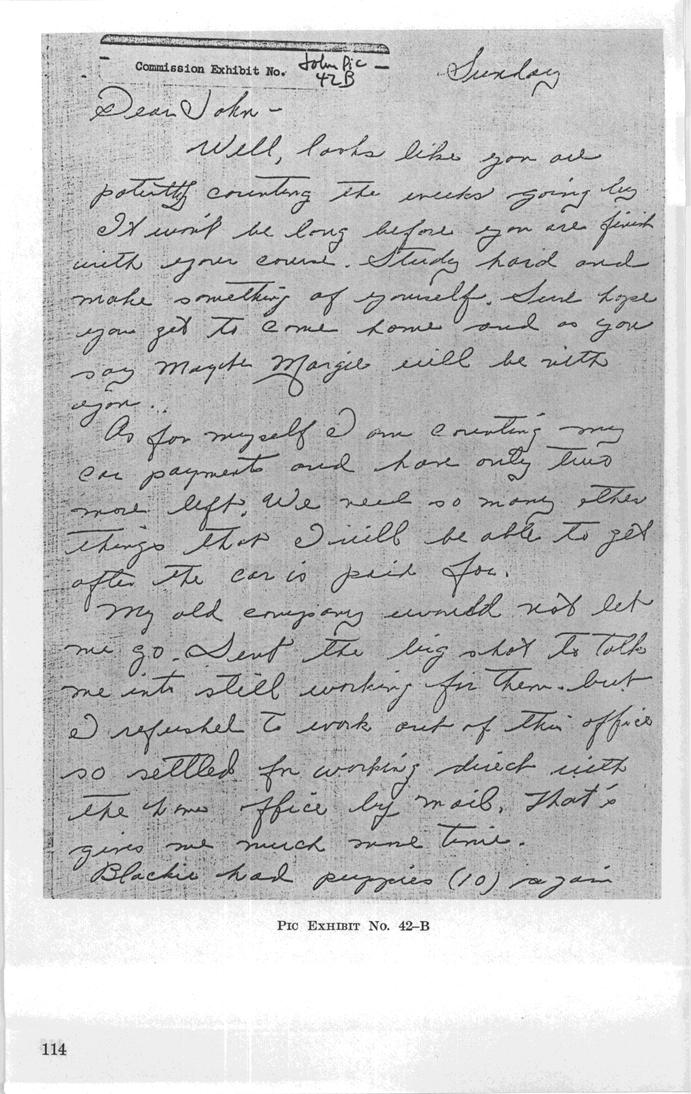 Commission Exhibit No. John Pic
42B
Sunday
Dear John -
Well, looks like you are
counting the weeks going by
It won't be long before you are finish
with your course. Study hard and
make something of yourself. Sure hope
you get to come home and as you
say Maybe Margie will be with
you..
As for myself I am counting my
car payments and have only two
more left. We need so many other
things that I will be able to get
after the car is paid for.
My old company would not let
me go. Sent the big shot to talk
me into still working for them. but
I refushel to work out of this office
so settled for working direct with
the home office by mail. That's
gives me much more time.
Blackie had puppies (10) again
Pic Exhibit No. 42–B
114